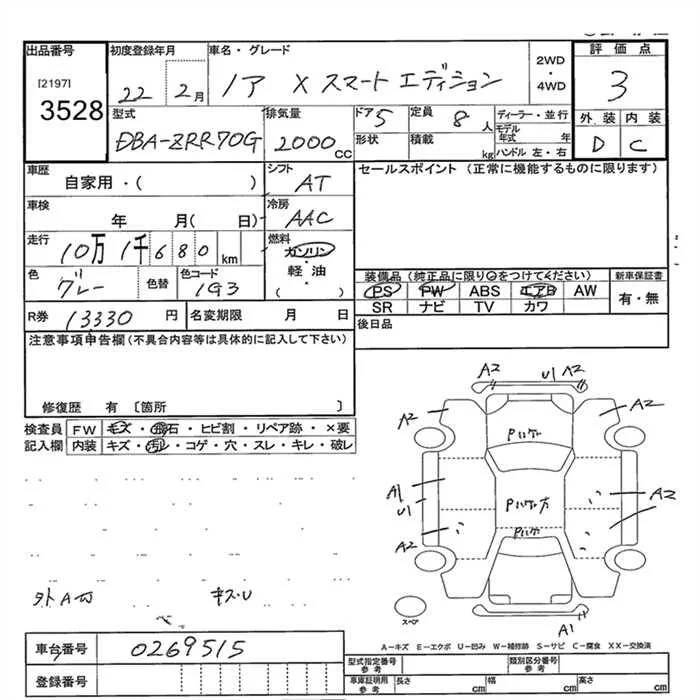 出品番号 初度登録年月 車名・グレード 2WD・4WD 評価点
[2197] 3528 22年 2月 ノア X スマート エディション 3
型式 排気量 ドア 5 定員 8人 ディーラー・並行 外装 内装
DBA-ZRR70G 2000cc 形状 積載 kg モデル年式 年 ハンドル 左・右 D C
車歴 シフト セールスポイント (正常に機能するものに限ります)
自家用・( ) AT
車検 冷房
年 月( 日) AAC
走行 燃料
10万 1千 6 8 0 km ガソリン・軽油 ( )
装備品 (純正品に限り○をつけてください) 新車保証書
色 グレー 色替 色コード 1G3 PS PW ABS エアB AW 有・無
SR ナビ TV カワ
R券 13330円 名変期限 月 日 後日品
注意事項申告欄 (不具合内容等は具体的に記入して下さい)
修復歴 有 〔箇所 〕
検査員 FW キズ・飛石・ヒビ割・リペア跡・×要
記入欄 内装 キズ・汚レ・コゲ・穴・スレ・キレ・破レ
A2 U1 A2
A2 A2
A1 U1 A2
A2
A1
外A キズU
スペア
A-キズ E-エクボ U-凹み W-補修跡 S-サビ C-腐食 XX-交換済
車台番号 0269515
登録番号
型式指定番号 参考 類別区分番号 参考
車庫証明用 参考 長さ cm 幅 cm 高さ cm